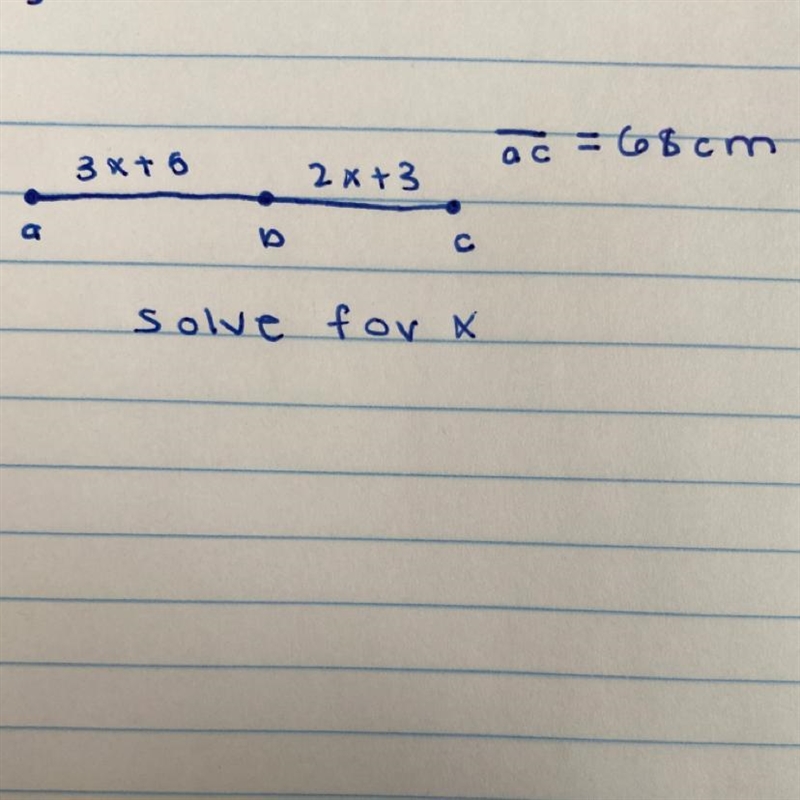 3x+6 2x+3 ac = 68cm
a b c
solve for x